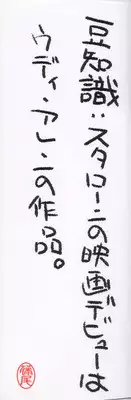 豆知識：スタローンの映画デビューは
ウディ・アレンの作品。